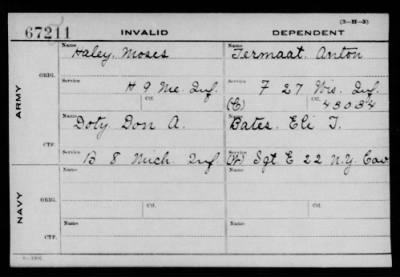 (3-H-3)
67211 INVALID DEPENDENT
ARMY
ORIG.
Name Haley, Moses
Name Termaat, Anton
Service H 9 Me. Inf.
Ctf.
Service F 27 Wis. Inf.
(C) Ctf. 43034
CTF.
Name Doty, Don A.
Name Bates, Eli T.
Service B 8 Mich Inf
Service Sgt E 22 N.Y. Cav
NAVY
ORIG.
Name
Ctf.
Name
Ctf.
CTF.
Name
Name